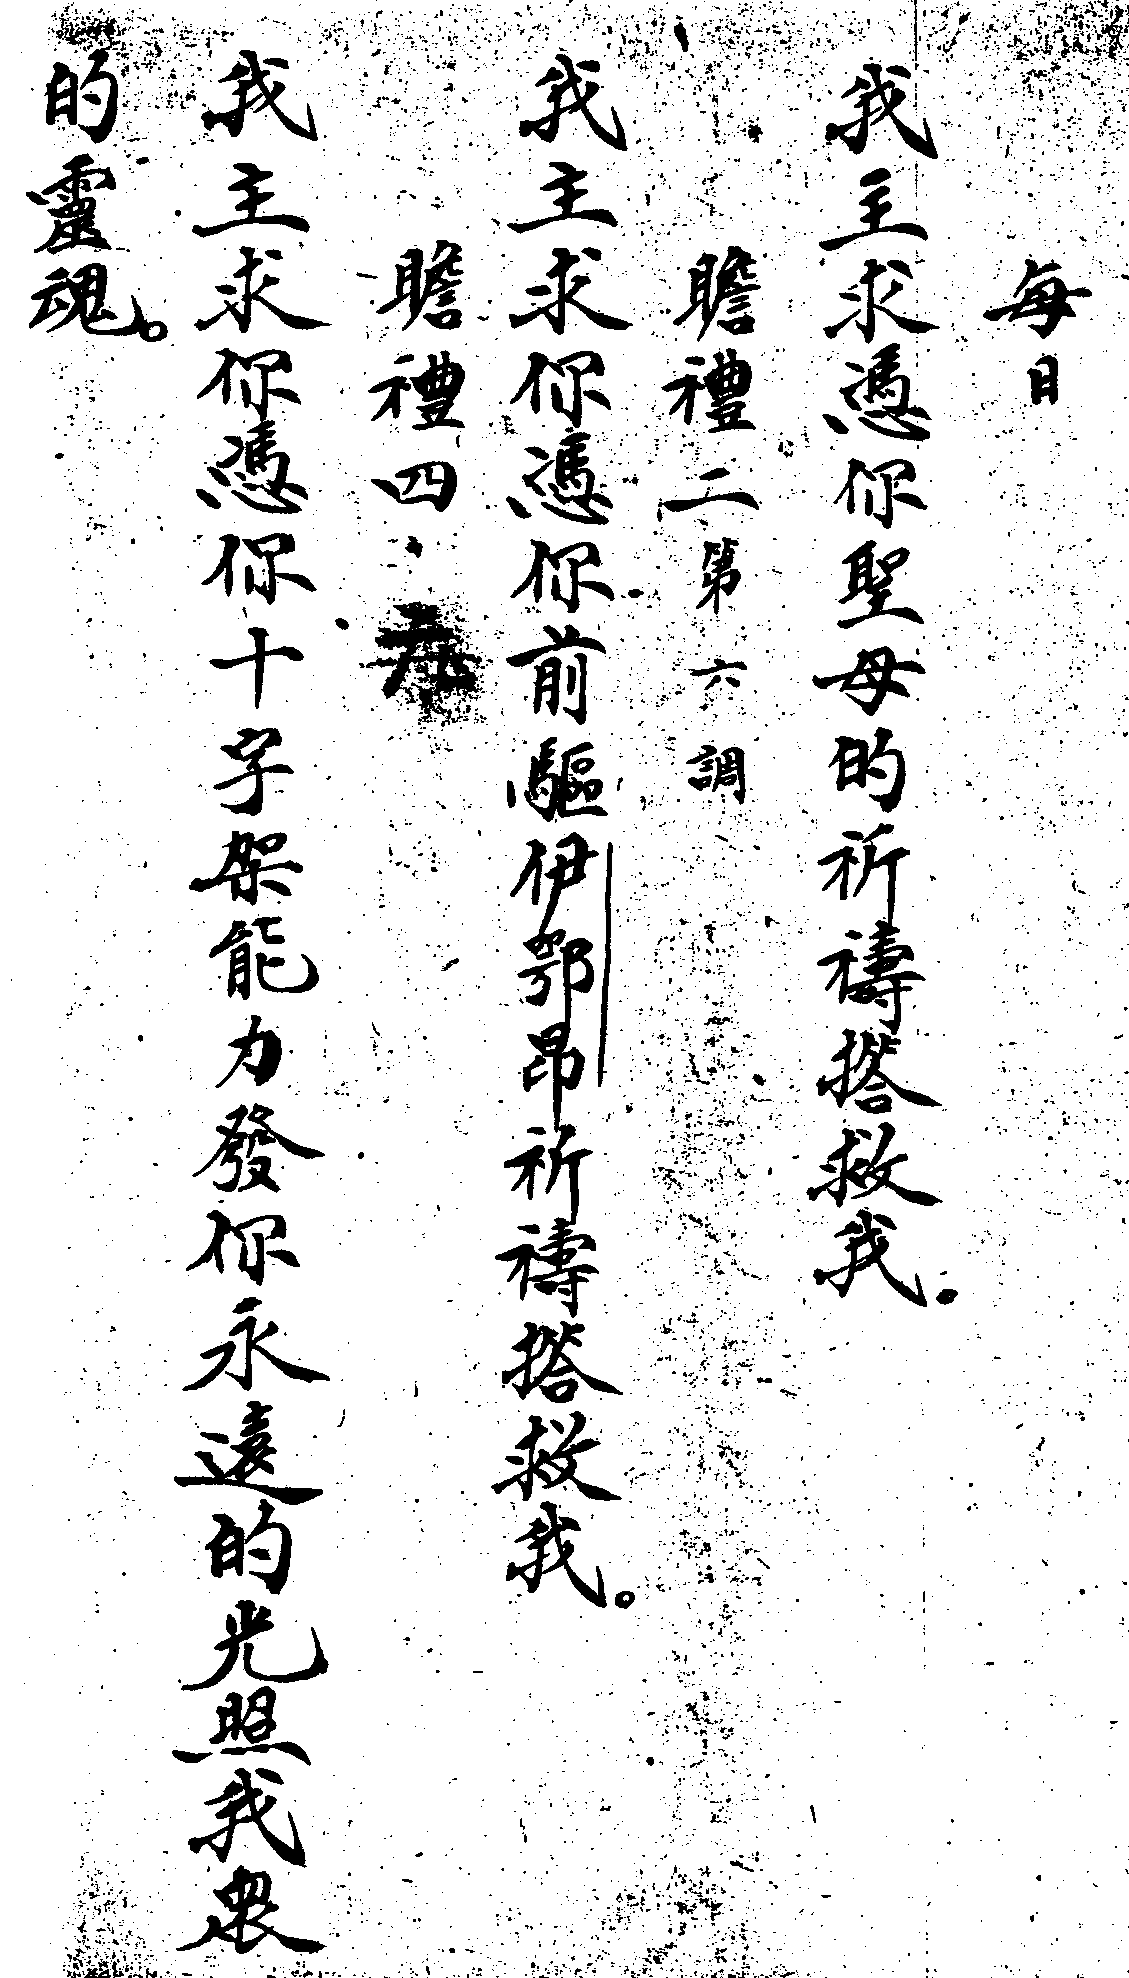 每日
我主求憑你聖母的祈禱搭救我。
瞻禮二第六調
我主求你憑你前驅伊鄂昂祈禱搭救我。
瞻禮四
我主求你憑你十字架能力發你永遠的光照我衆
的靈魂。